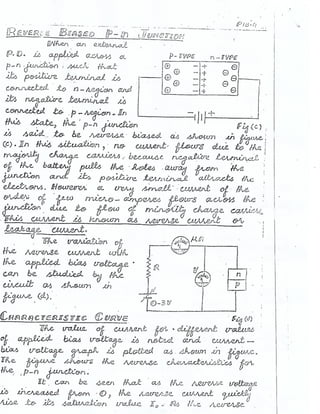 P18-4
REVERSE BIASED P-N JUNCTION
When an external
P.D. is applied across a
p-n junction such that
its positive terminal is
connected to n-region and
its negative terminal is
connected to p-region. In
this state, the p-n junction
P-TYPE n-TYPE
Fig (c)
is said to be reverse biased as shown in figure
(c). In this situation, no current flows due to the
majority charge carriers, because negative terminal
of the battery pulls the holes away from the
junction and its positive terminal attracts the
electrons. However a very small current of the
order of few micro-amperes flows across the
junction due to flow of minority charge carriers.
This current is known as reverse current or
leakage current.
The variation of
the reverse current with
the applied bias voltage
can be studied by the
circuit as shown in
figure (d).
R
V
n
P
-3V
CHARACTERISTIC CURVE
The value of current for different values
of applied bias voltage is noted and current-
bias voltage graph is plotted as shown in figure.
The figure shows the reverse characteristics for
the p-n junction.
It can be seen that as the reverse voltage
is increased from 0, the reverse current quickly
rise to its saturation value I₀. As the reverse